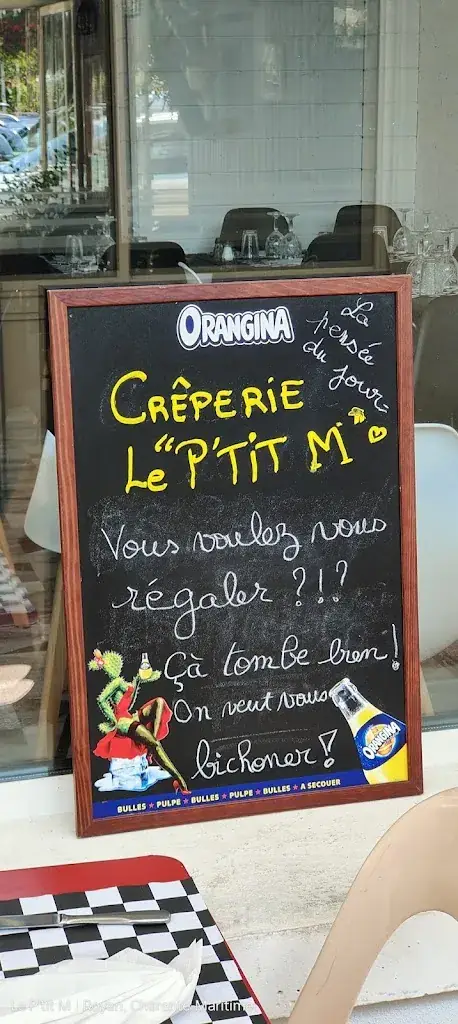 ORANGINA
La
pensée
du jour
CRÊPERIE
Le "P'TIT M"
Vous voulez vous
régaler ?!?
Çà tombe bien !
On veut vous
bichoner !
ORANGINA
BULLES ★ PULPE ★ BULLES ★ PULPE ★ BULLES ★ A SECOUER
Le P'tit M | Royan, Charente-Maritime